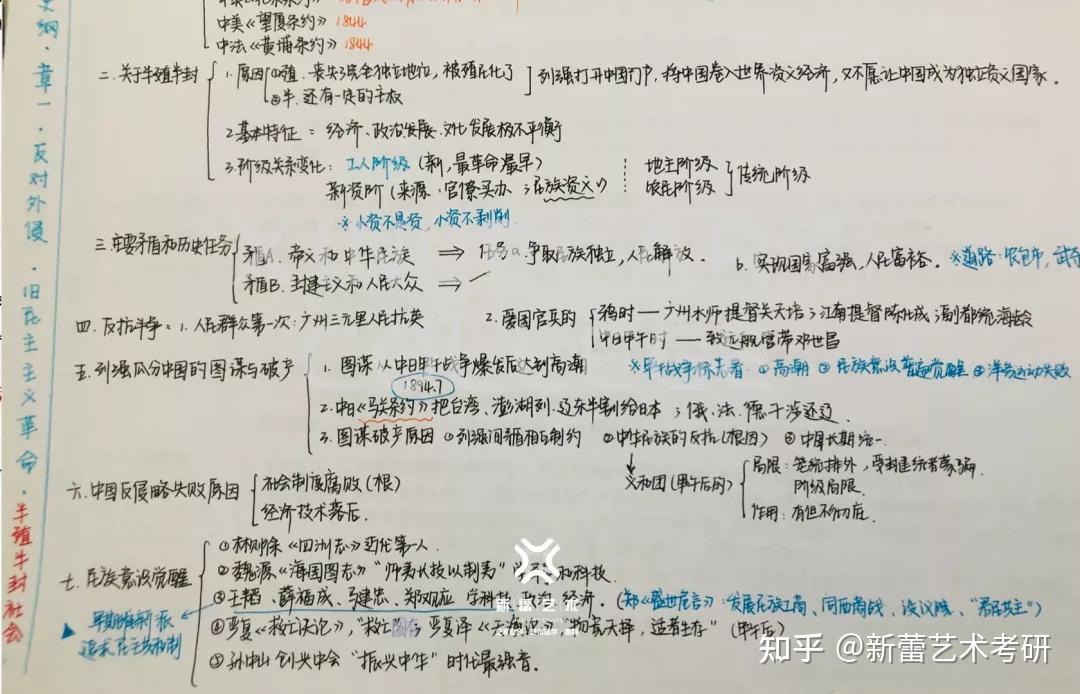 史纲·章一·反对外侵·旧民主主义革命·半殖半封社会
中美《望厦条约》1844
中法《黄埔条约》1844
二.关于半殖半封
1.原因 ①殖.丧失了完全独立地位,被殖民化了
②半.还有一定的主权
列强打开中国门户,将中国卷入世界资义经济,又不愿让中国成为独立资义国家.
2.基本特征:经济、政治发展.文化发展极不平衡
3.阶级关系变化:工人阶级(新,最革命最早)
新资阶(来源:官僚买办;民族资义)
地主阶级
农民阶级
传统阶级
※小资不是资,小资不剥削.
三.主要矛盾和历史任务
矛盾A.帝义和中华民族 ⇒ 任务a.争取民族独立,人民解放.
b.实现国家富强,人民富裕.
※道路:农包市,武夺
矛盾B.封建主义和人民大众 ⇒
四.反抗斗争:1.人民群众第一次:广州三元里人民抗英
2.爱国官兵的
鸦时—广州水师提督关天培;江南提督陈化成;副都统海龄
中日甲午时—致远舰管带邓世昌
五.列强瓜分中国的图谋与破产
1.图谋从中日甲午战争爆发后达到高潮
1894.7
※甲午战争标志着:①高潮 ②民族意识普遍觉醒 ③洋务运动失败
2.中日《马关条约》把台湾、澎湖列.辽东半割给日本;俄、法、德干涉还辽.
3.图谋破产原因 ①列强间矛盾相互制约 ②中华民族的反抗(根因) ③中国长期统一.
义和团(甲午后的)
局限:笼统排外,受封建统者蒙骗.
阶级局限.
作用:有但不彻底.
六.中国反侵略失败原因
社会制度腐败(根)
经济技术落后.
七.民族意识觉醒
①林则徐《四洲志》西化第一人.
②魏源《海国图志》"师夷长技以制夷" 学 和科技.
③王韬、薛福成、马建忠、郑观应 学科技、政治、经济.(郑《盛世危言》:发展民族工商,同西商战,设议院、"君民共主")
早期维新派
追求民主共和制
④严复《救亡决论》,"救亡" 严复译《天演论》"物竞天择,适者生存"(甲午后)
⑤孙中山创兴中会"振兴中华"时代最强音.
新蕾艺术
知乎 @新蕾艺术考研